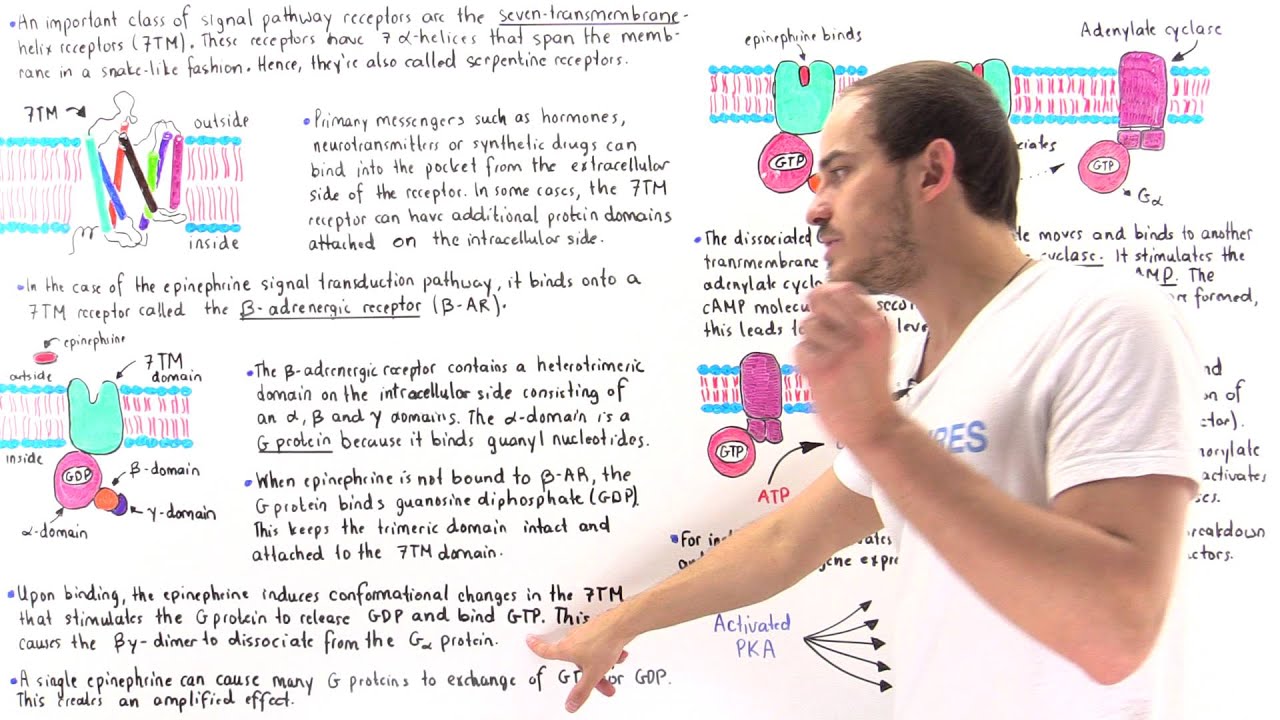 •An important class of signal pathway receptors are the seven-transmembrane-
helix receptors (7TM). These receptors have 7 α-helices that span the memb-
rane in a snake-like fashion. Hence, they're also called serpentine receptors.
7TM
outside
inside
•Primary messengers such as hormones,
neurotransmitters or synthetic drugs can
bind into the pocket from the extracellular
side of the receptor. In some cases, the 7TM
receptor can have additional protein domains
attached on the intracellular side.
•In the case of the epinephrine signal transduction pathway, it binds onto a
7TM receptor called the β-adrenergic receptor (β-AR).
epinephrine
outside
7TM
domain
inside
GDP
β-domain
γ-domain
α-domain
•The β-adrenergic receptor contains a heterotrimeric
domain on the intracellular side consisting of
an α, β and γ domains. The α-domain is a
G protein because it binds guanyl nucleotides.
•When epinephrine is not bound to β-AR, the
G protein binds guanosine diphosphate (GDP).
This keeps the trimeric domain intact and
attached to the 7TM domain.
•Upon binding, the epinephrine induces conformational changes in the 7TM
that stimulates the G protein to release GDP and bind GTP. This
causes the βγ-dimer to dissociate from the Gα protein.
•A single epinephrine can cause many G proteins to exchange of GT or GDP.
This creates an amplified effect.
epinephrine binds
Adenylate cyclase
GTP
ciates
GTP
Gα
•The dissociated moves and binds to another
transmembrane cyclase. It stimulates the
adenylate cycl AMP. The
cAMP molecu secon re formed,
this leads to leve
GTP
ATP
nd
on of
ctor).
horylate
activates
ses.
•For in ates breakdown
gene expre ctors.
Activated
PKA
RES